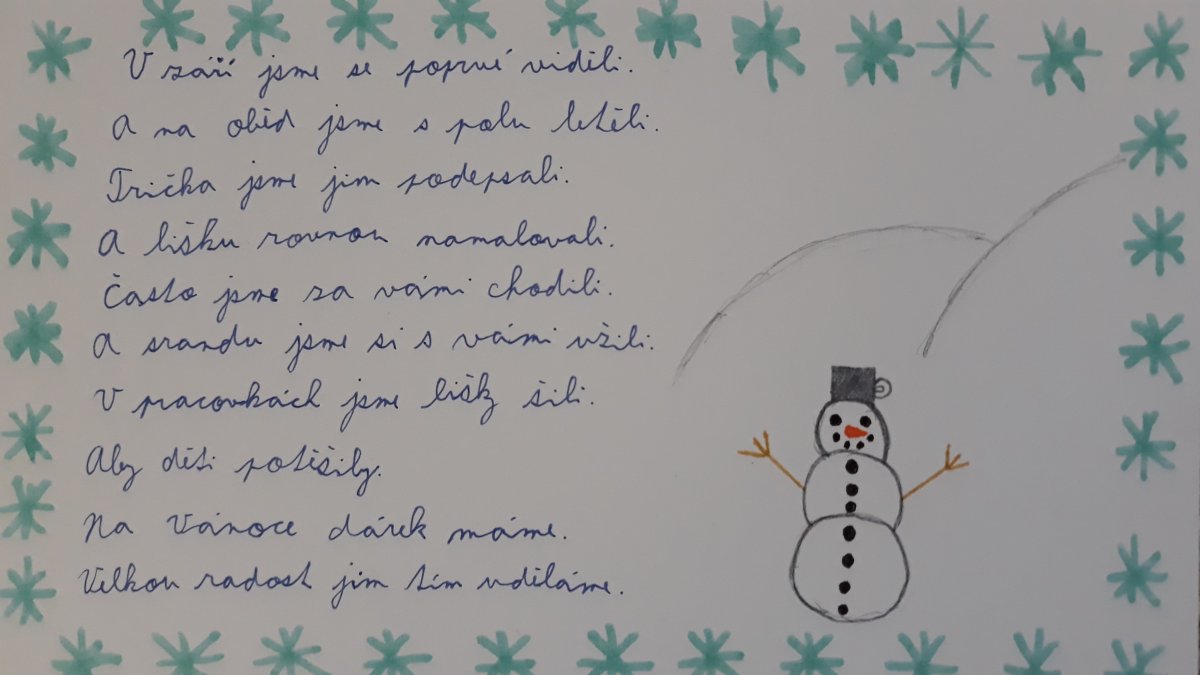 V září jsme se poprvé viděli.
A na oběd jsme s polu letěli.
Trička jsme jim podepsali.
A lišku rovnou namalovali.
Často jsme za vámi chodili.
A srandu jsme si s vámi užili.
V pracovkách jsme lišky šili.
Aby děti potěšily.
Na Vánoce dárek máme.
Velkou radost jim tím uděláme.